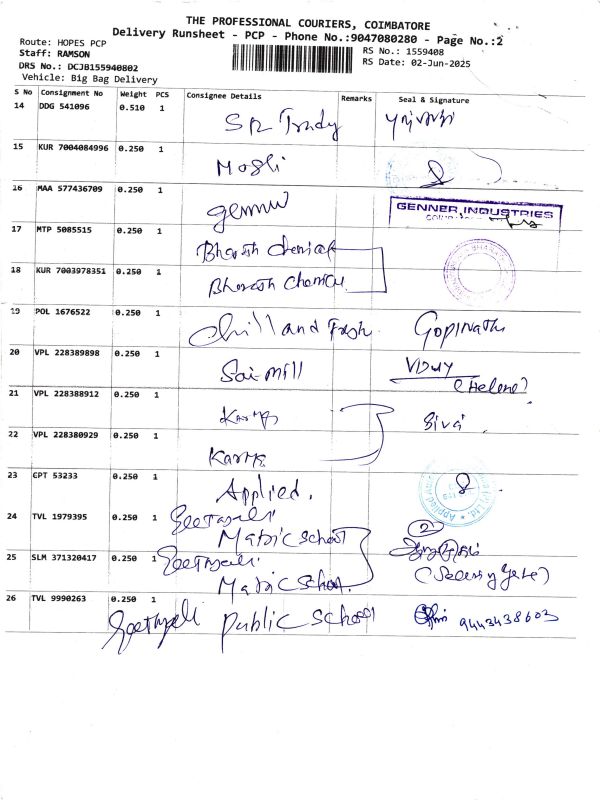 THE PROFESSIONAL COURIERS, COIMBATORE
Delivery Runsheet - PCP - Phone No.:9047080280 - Page No.:2
Route: HOPES PCP
RS No.: 1559408
Staff: RAMSON
RS Date: 02-Jun-2025
DRS No.: DCJB155940802
Vehicle: Big Bag Delivery
S No Consignment No Weight PCS Consignee Details Remarks Seal & Signature
14 DDG 541096 0.510 1 SR Trady
15 KUR 7004084996 0.250 1 Mosli
16 MAA 577436709 0.250 1 Genner GENNER INDUSTRIES
17 MTP 5085515 0.250 1 Bharath Chemical
18 KUR 7003978351 0.250 1 Bharath Chemical
19 POL 1676522 0.250 1 Chill and Fresh Gopinath
20 VPL 228389898 0.250 1 Sai mill VIJAY
(Helene)
21 VPL 228388912 0.250 1 Karma Siva
22 VPL 228380929 0.250 1 Karma
23 CPT 53233 0.250 1 Applied.
24 TVL 1979395 0.250 1 Geethanjali 2
Matric School
25 SLM 371320417 0.250 1 Geethanjali
Matric School. (Security Gate)
26 TVL 9990263 0.250 1 Geethanjali public School 9443438603